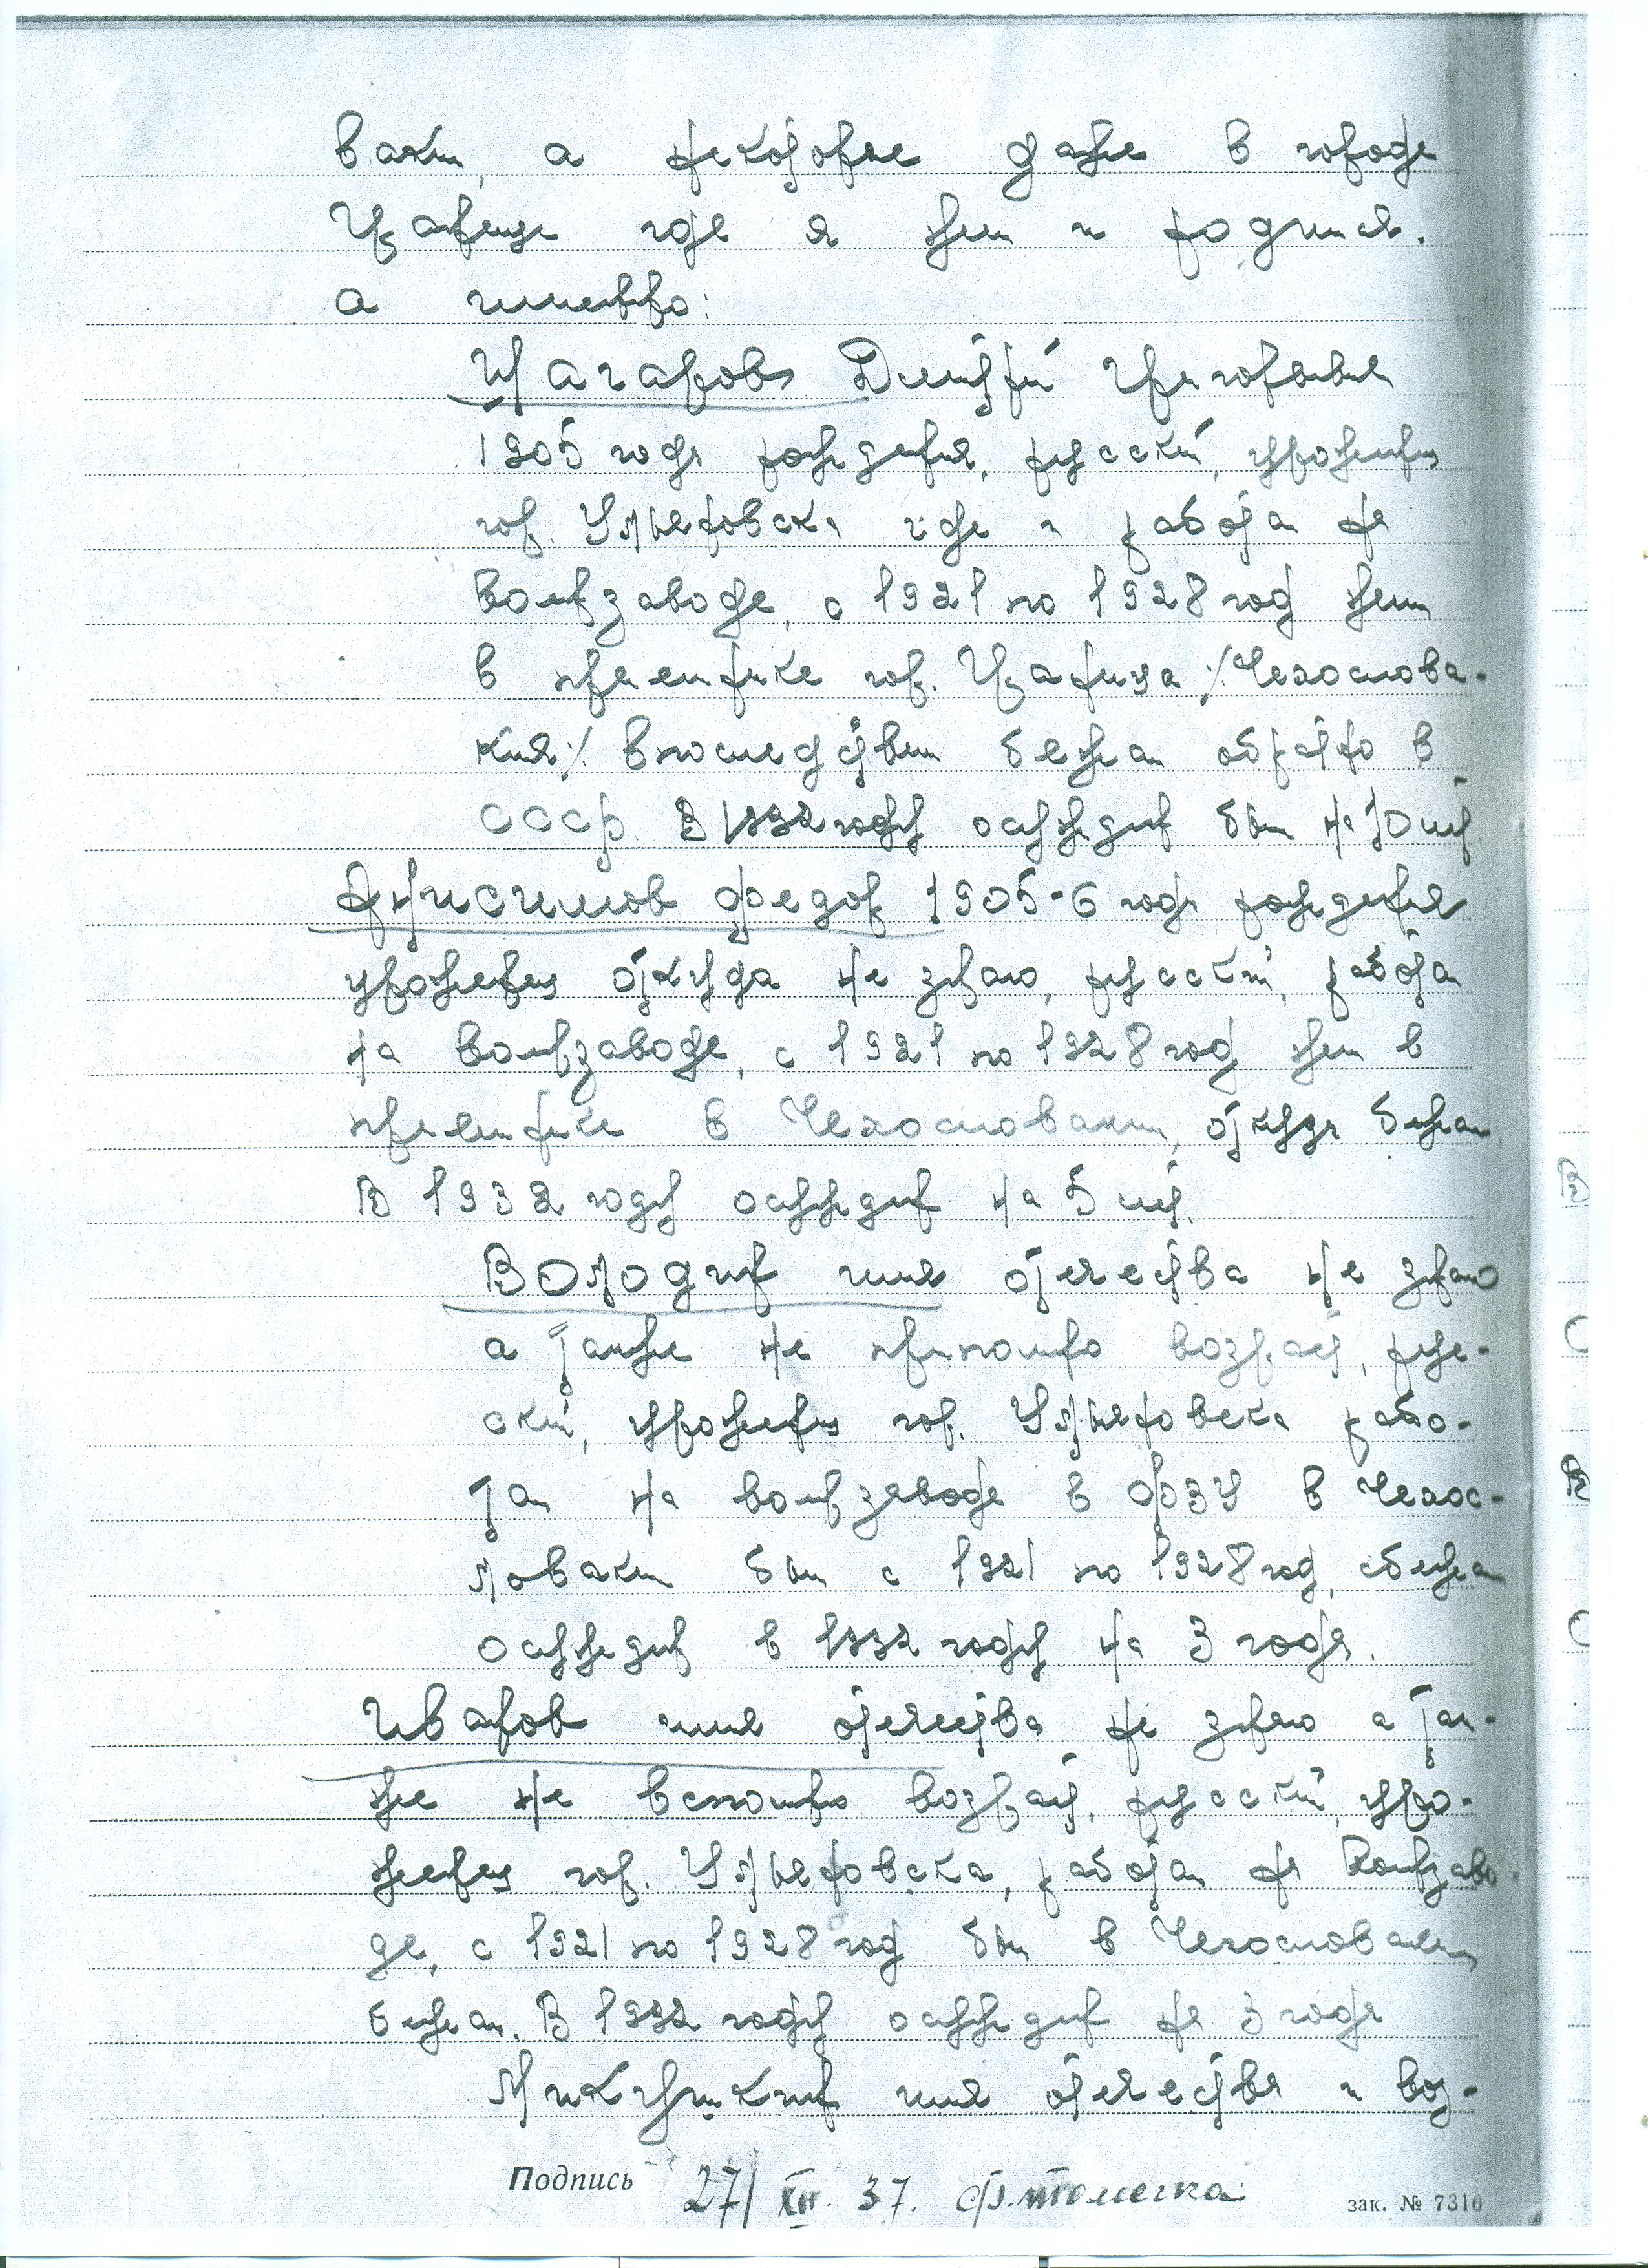 вакии, а некоторые даже в городе
Границе где я жил и родился.
а именно:
Цагаров Дмитрий Григорьевич
1905 года рождения, русский, уроженец
гор. Ульяновска где и работал на
Волгзаводе, с 1921 по 1928 год жил
в приемнике гор. Границе /Чехослова-
кия/. впоследствии бежал обратно в
СССР. В 1932 году осужден был на 10 лет.
Анисимов Федор 1905-6 года рождения
уроженец откуда не знаю, русский, работал
на Волгзаводе, с 1921 по 1928 год жил в
приемнике в Чехословакии, откуда бежал
В 1932 году осужден на 5 лет.
Володин имя отечества не знаю
а также не припомню возраст, рус-
ский, уроженец гор. Ульяновска рабо-
тал на волгзаводе в ФЗУ в Чехос-
ловакии был с 1921 по 1928 год, сбежал
Осужден в 1932 году на 3 года.
Иванов имя отечества не знаю а так-
же не вспомню возраст, русский, уро-
женец гор. Ульяновска, работал на Волгзаво-
де, с 1921 по 1928 год был в Чехословакии
бежал. В 1932 году осужден на 3 года
Микушкин имя отечества и воз-
Подпись 27/XII 37.
зак. № 7316